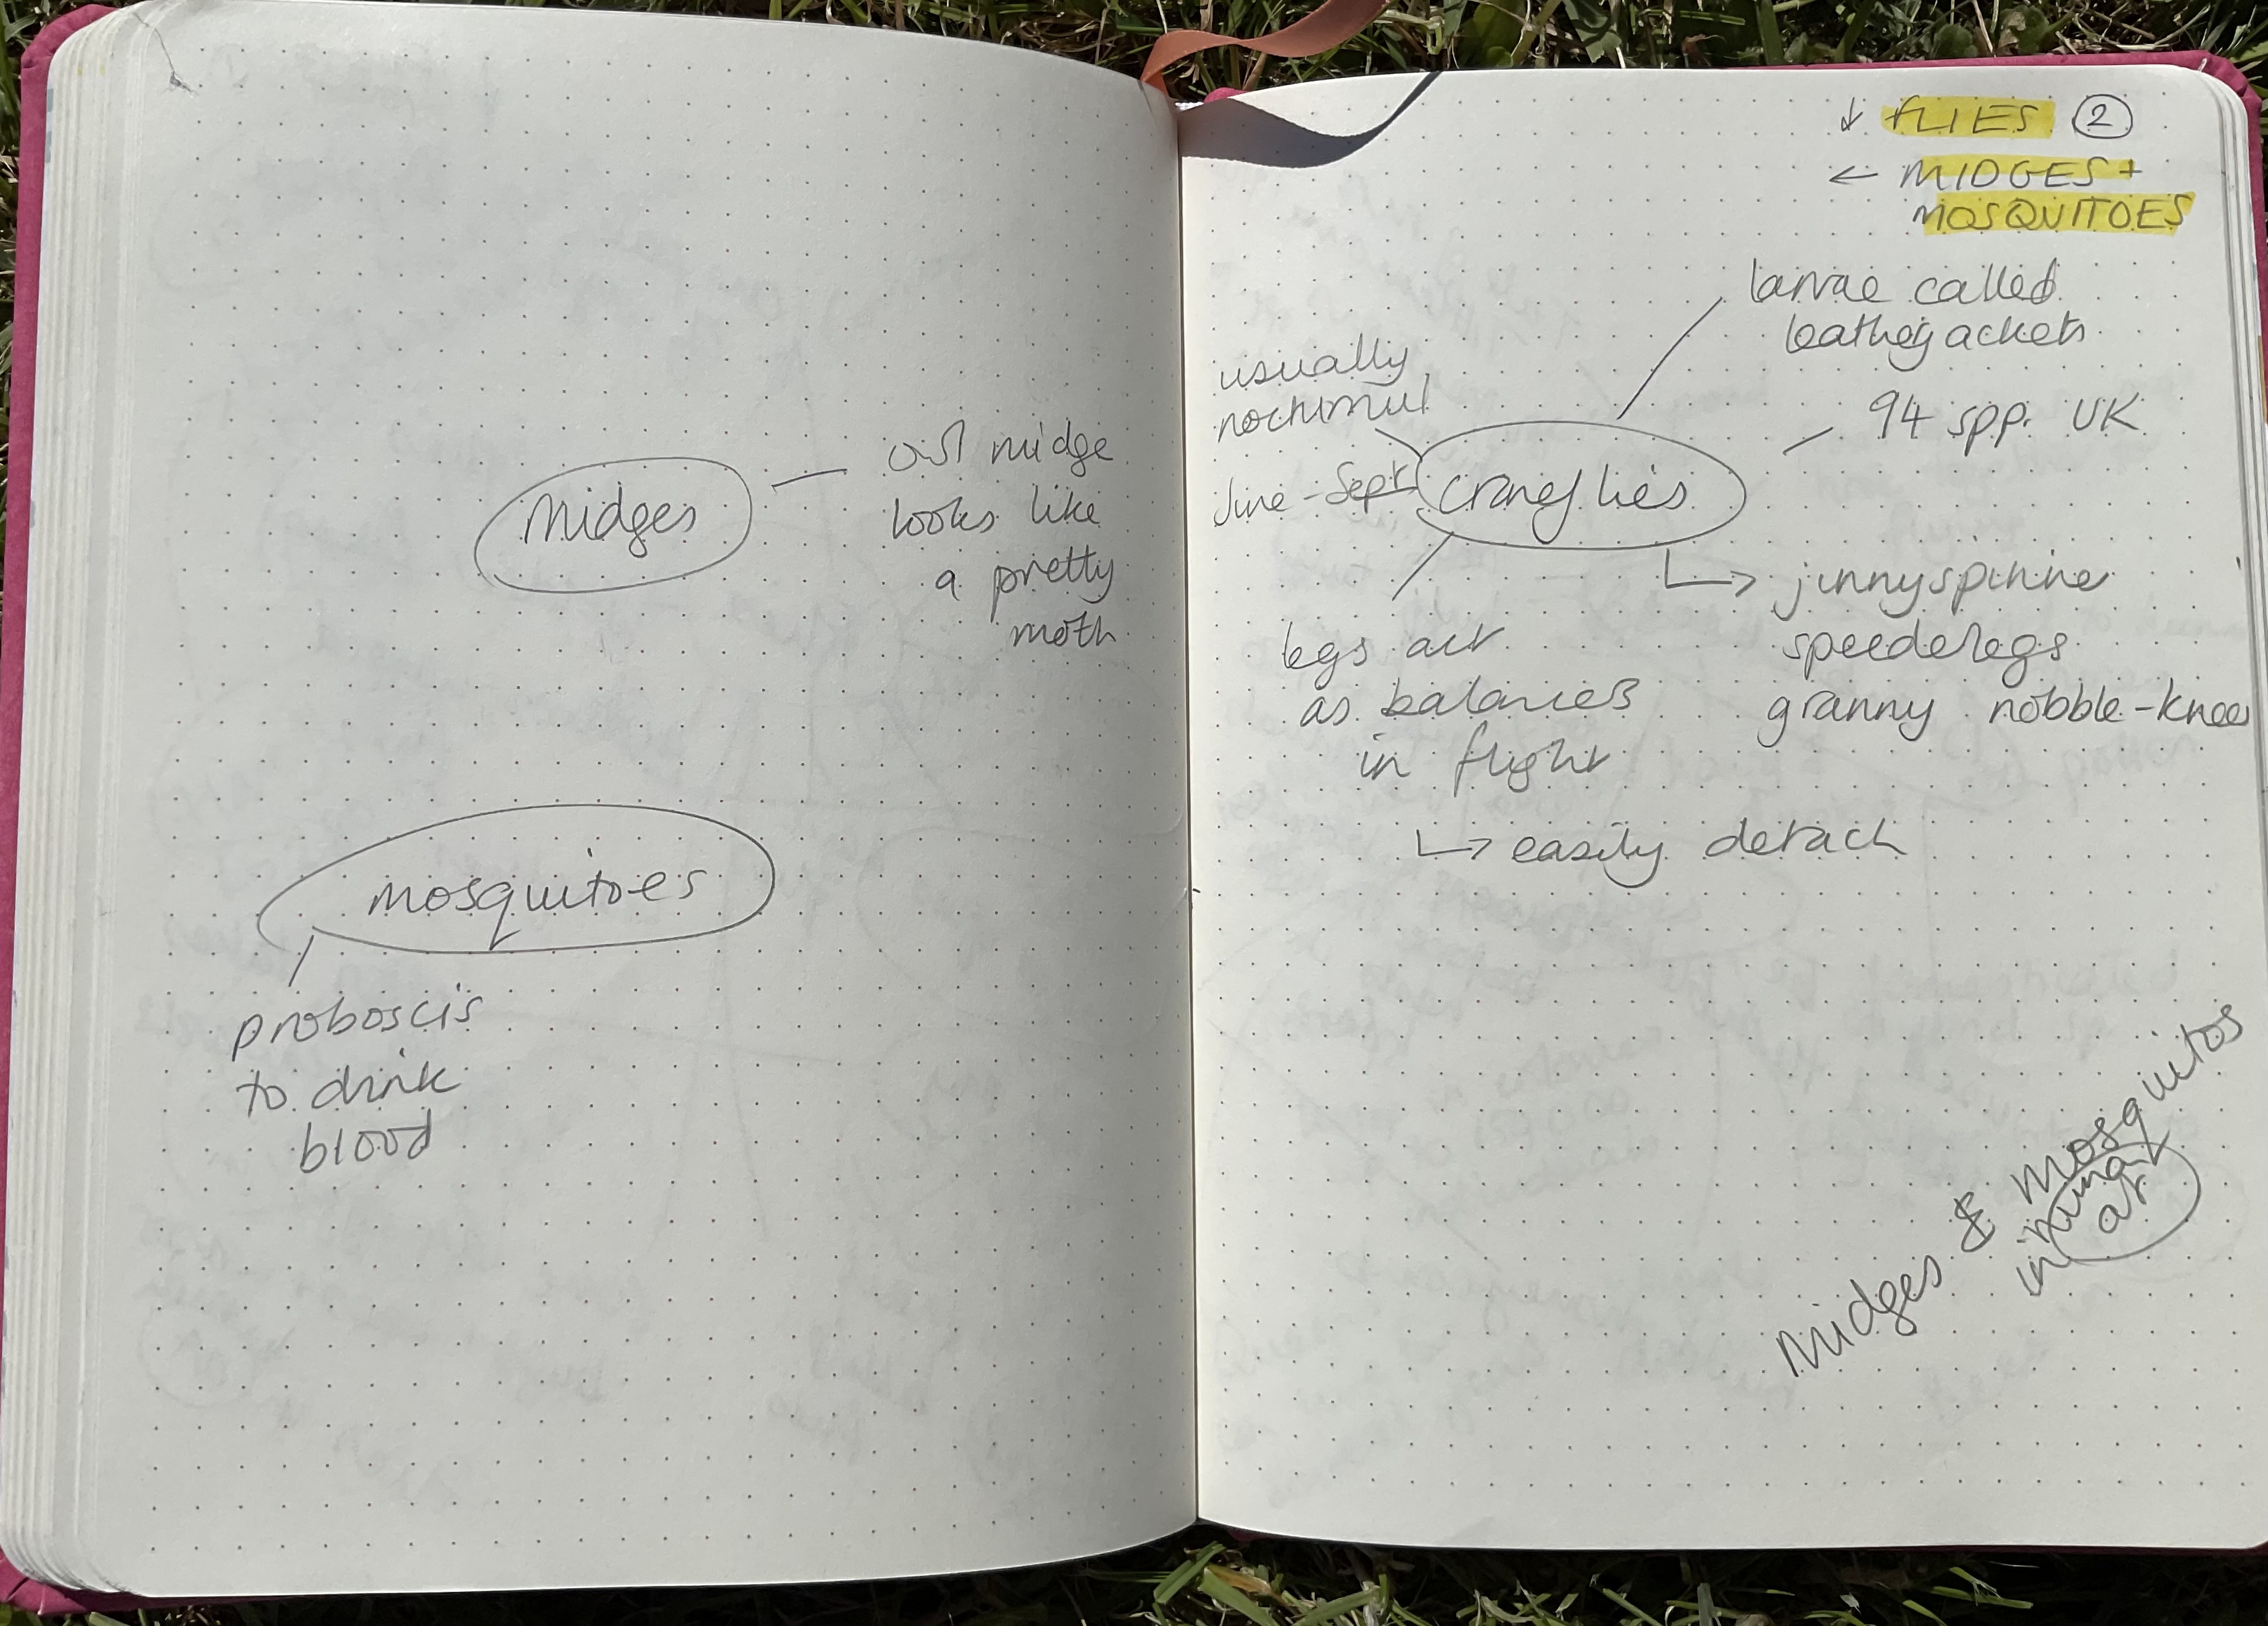 midges
owl midge
looks like
a pretty
moth
mosquitoes
proboscis
to drink
blood
↓ FLIES ②
← MIDGES +
MOSQUITOES
larvae called
leatherjackets
usually
94 spp. UK
June - Sept
craneflies
jinnyspinne
legs act
as balances
in flight
granny nobble-knees
↳ easily detach
midges & mosquitos
in
art